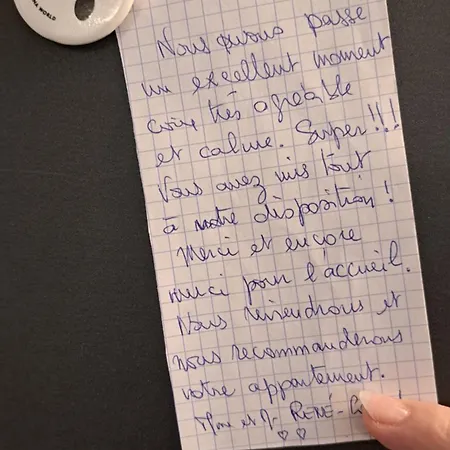 WORLD
Nous avons passe
un excellent moment
coin très agréable
et calme. Super!!!
Vous avez mis tout
à notre disposition!
Merci et encore
merci pour l'accueil.
Nous reviendrons et
nous recommanderons
votre appartement.
Mme et Mr RENÉ-